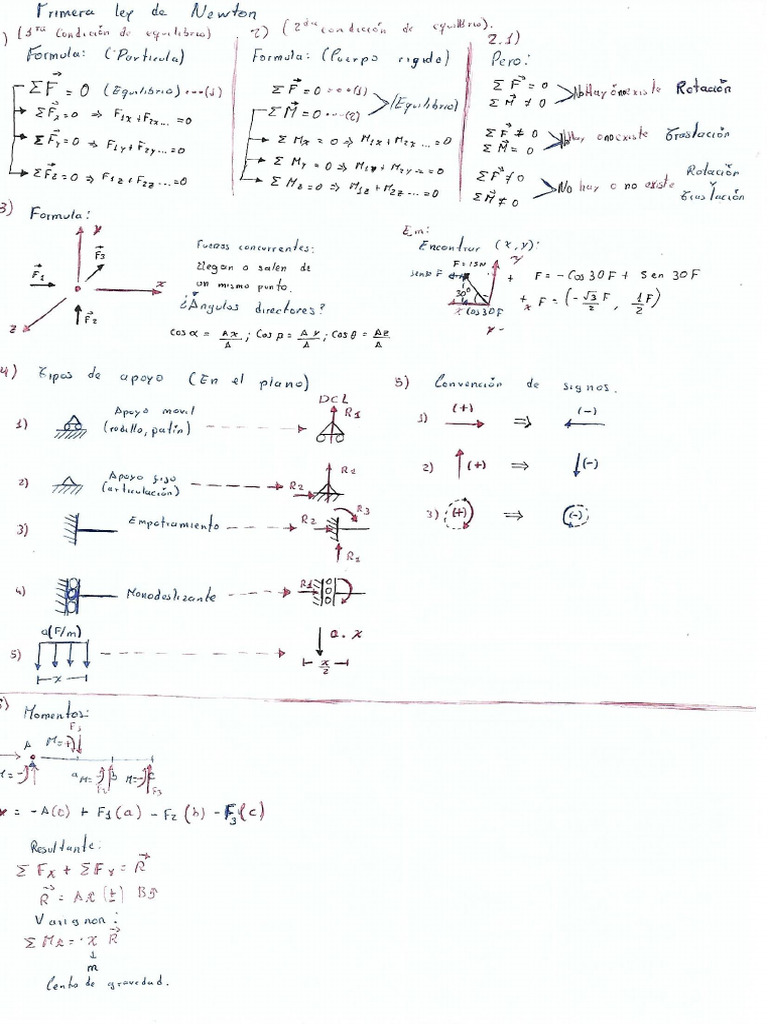 Primera ley de Newton
1) (1ra condición de equilibrio)
Formula: (Particula)
ΣF⃗ = 0 (Equilibrio) ...(1)
ΣFx=0 ⇒ F1x+F2x... =0
ΣFy=0 ⇒ F1y+F2y...=0
ΣFz=0 ⇒ F1z+F2z...=0
2) (2da condición de equilibrio).
Formula: (Cuerpo rigido)
ΣF⃗=0 ...(1)
ΣM⃗=0 ...(2)
(Equilibrio)
ΣMx =0 ⇒ M1x+M2x...=0
ΣMy =0 ⇒ M1y+M2y...=0
ΣMz=0 ⇒ M1z+M2z...=0
2.1)
Pero:
ΣF⃗ = 0
ΣM⃗ ≠ 0
No Hay ó no existe Rotación
ΣF⃗ ≠ 0
ΣM⃗ = 0
No Hay o no existe traslación
ΣF⃗ ≠ 0
ΣM⃗ ≠ 0
No hay o no existe Rotación y traslación
3) Formula:
y
F⃗3
F⃗1
x
F⃗2
z
Fuerzas concurrentes:
llegan o salen de
un mismo punto.
¿Ángulos directores?
Cosα = Ax/A ; Cosβ = Ay/A ; Cosθ = Az/A
Em:
Encontrar (x,y):
F=15N
senθ F
30°
x Cos30F
y
y-
+ F=-Cos30F + Sen 30F
+x F=(-√3/2 F, 1/2 F)
4) Tipos de apoyo (En el plano)
DCL
1) Apoyo movil
(rodillo, patín)
R1
2) Apoyo fijo
(articulación)
R2
R2
3) Empotramiento
R2
R3
R1
4) Monodeslizante
R1
5) a(F/m)
x
a.x
x/2
5) Convención de signos.
1) (+) ⇒ (-)
2) (+) ⇒ (-)
3) (+) ⇒ (-)
Momentos:
F1
A M=+
a M=- b M=- c
M=-
F2
F3
= -A(c) + F1(a) - F2(b) - F3(c)
Resultante:
ΣFx + ΣFy = R⃗
Varignon:
= x R⃗
↓
m
Cento de gravedad.